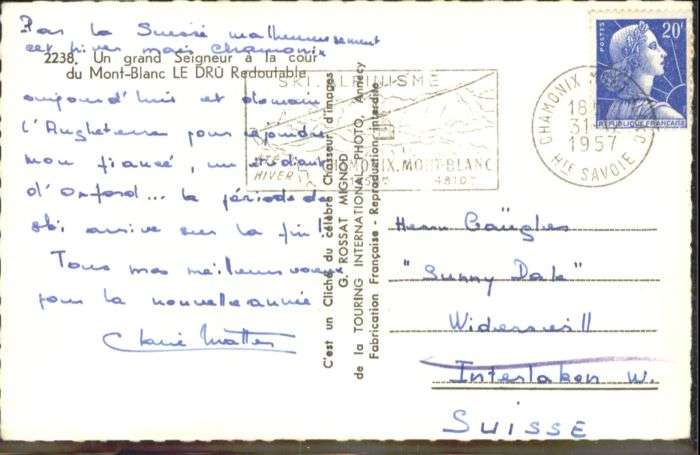 Pas la Suisse malheureusement
cet hiver mais Chamonix
2238. Un grand Seigneur à la cour
du Mont-Blanc LE DRÛ Redoutable
aujourd'hui et demain
l'Angleterre pour rejoindre
mon fiancé, un étudiant
d'Oxford... la période de
ski arrive sur la fin!
Tous mes meilleurs voeux
pour la nouvelle année
Claire
SKI ALPINISME
ÉTÉ
HIVER
CHAMONIX. MONT-BLANC
4810m
C'est un Cliché du célèbre Chasseur d'images
G. ROSSAT MIGNOD
de la TOURING INTERNATIONAL PHOTO, Annecy
Fabrication Française - Reproduction interdite
POSTES
20F
REPUBLIQUE FRANÇAISE
CHAMONIX MONT
18
31
1957
HTE SAVOIE
Herrn
"Sunny Dale"
Interlaken W.
SUISSE